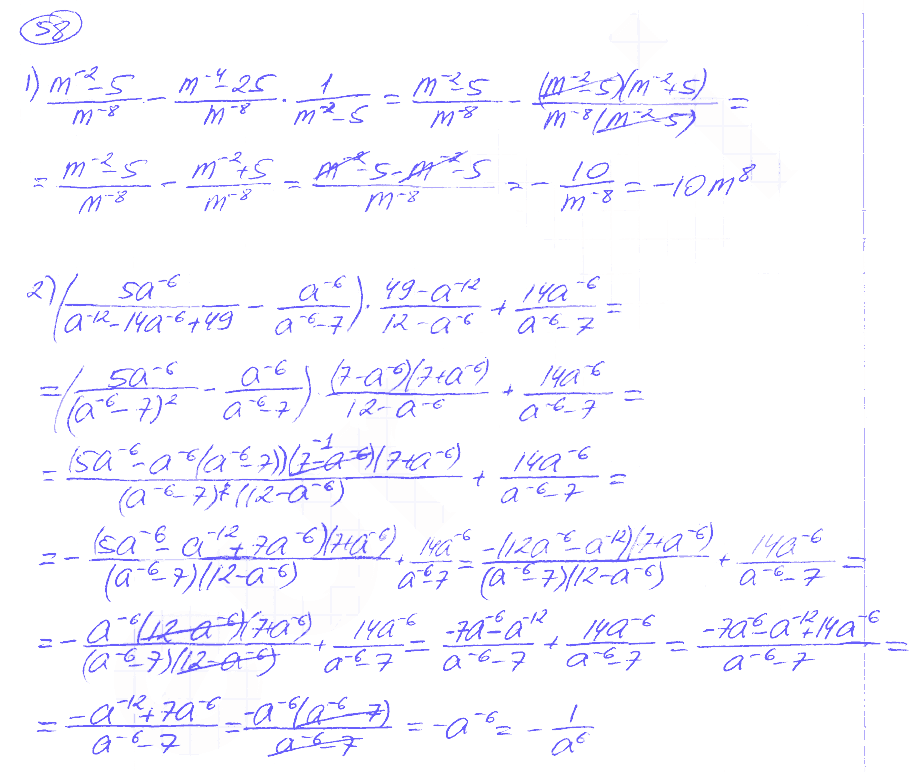 58
1) \frac{m^{-2}-5}{m^{-8}} - \frac{m^{-4}-25}{m^{-8}} \cdot \frac{1}{m^{-2}-5} = \frac{m^{-2}-5}{m^{-8}} - \frac{(m^{-2}-5)(m^{-2}+5)}{m^{-8}(m^{-2}-5)} =
= \frac{m^{-2}-5}{m^{-8}} - \frac{m^{-2}+5}{m^{-8}} = \frac{m^{-2}-5-m^{-2}-5}{m^{-8}} = -\frac{10}{m^{-8}} = -10m^{8}
2) \left(\frac{5a^{-6}}{a^{-12}-14a^{-6}+49} - \frac{a^{-6}}{a^{-6}-7}\right) \cdot \frac{49-a^{-12}}{12-a^{-6}} + \frac{14a^{-6}}{a^{-6}-7} =
= \left(\frac{5a^{-6}}{(a^{-6}-7)^2} - \frac{a^{-6}}{a^{-6}-7}\right) \cdot \frac{(7-a^{-6})(7+a^{-6})}{12-a^{-6}} + \frac{14a^{-6}}{a^{-6}-7} =
= \frac{(5a^{-6}-a^{-6}(a^{-6}-7))(7-a^{-6})^{-1}(7+a^{-6})}{(a^{-6}-7)^2(12-a^{-6})} + \frac{14a^{-6}}{a^{-6}-7} =
= -\frac{(5a^{-6}-a^{-12}+7a^{-6})(7+a^{-6})}{(a^{-6}-7)(12-a^{-6})} + \frac{14a^{-6}}{a^{-6}-7} = \frac{-(12a^{-6}-a^{-12})(7+a^{-6})}{(a^{-6}-7)(12-a^{-6})} + \frac{14a^{-6}}{a^{-6}-7} =
= -\frac{a^{-6}(12-a^{-6})(7+a^{-6})}{(a^{-6}-7)(12-a^{-6})} + \frac{14a^{-6}}{a^{-6}-7} = \frac{-7a^{-6}-a^{-12}}{a^{-6}-7} + \frac{14a^{-6}}{a^{-6}-7} = \frac{-7a^{-6}-a^{-12}+14a^{-6}}{a^{-6}-7} =
= \frac{-a^{-12}+7a^{-6}}{a^{-6}-7} = \frac{-a^{-6}(a^{-6}-7)}{a^{-6}-7} = -a^{-6} = -\frac{1}{a^{6}}